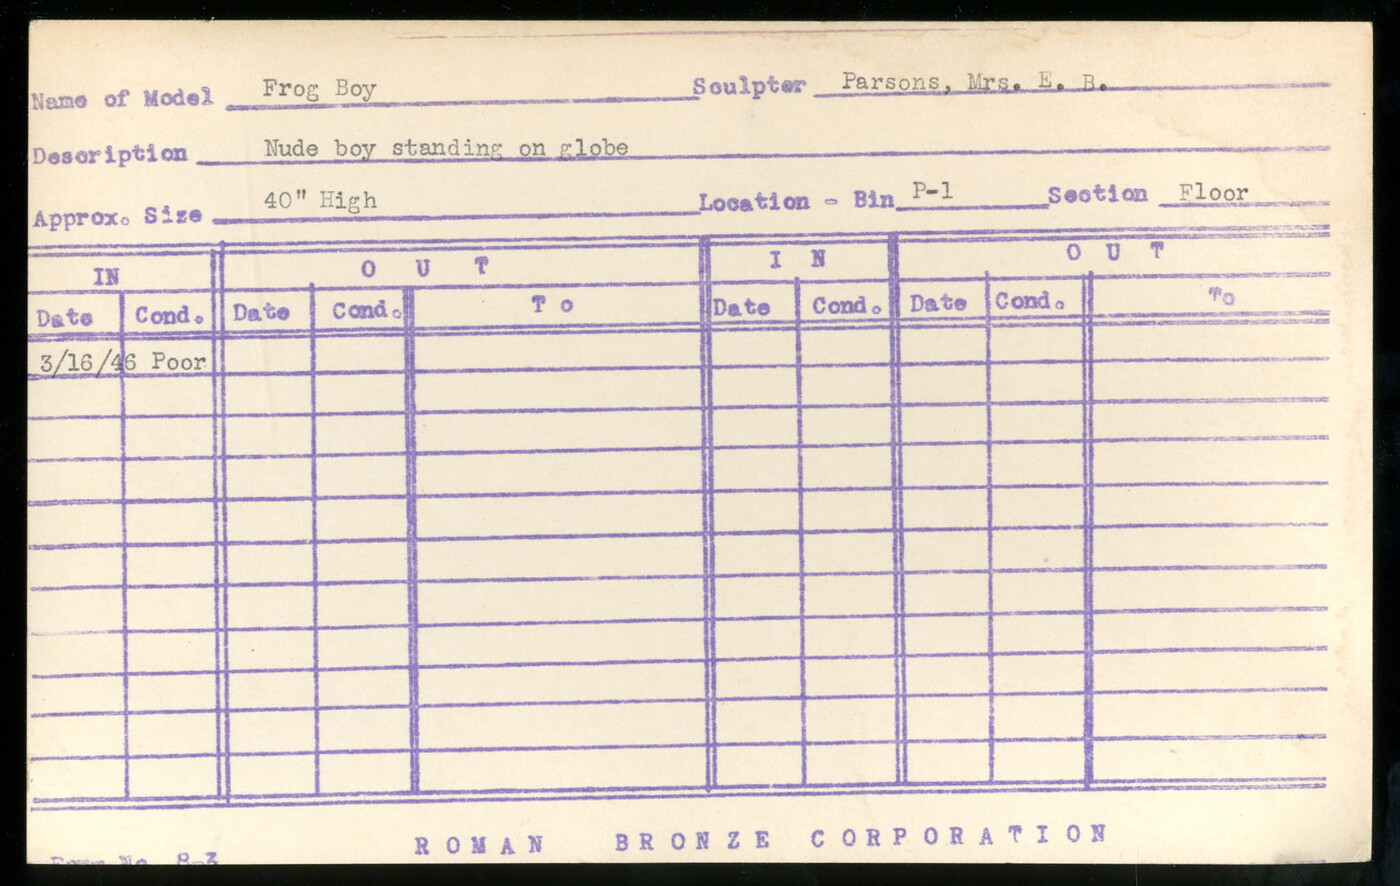 Name of Model Frog Boy Sculpter Parsons, Mrs. E. B.
Description Nude boy standing on globe
Approx. Size 40" High Location - Bin P-1 Section Floor
IN OUT IN OUT
Date Cond. Date Cond. To Date Cond. Date Cond. To
3/16/46 Poor
ROMAN BRONZE CORPORATION
Form No. 8-3